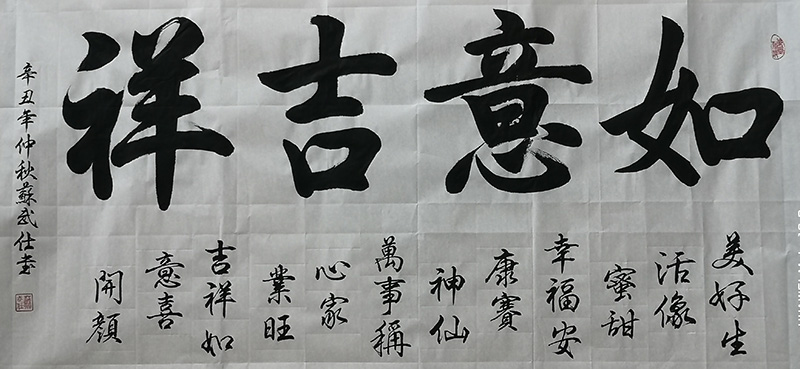 如意吉祥
美好生
活像
蜜甜
幸福安
康賽
神仙
萬事稱
心家
業旺
吉祥如
意喜
開顏
辛丑年仲秋蘇武仕書